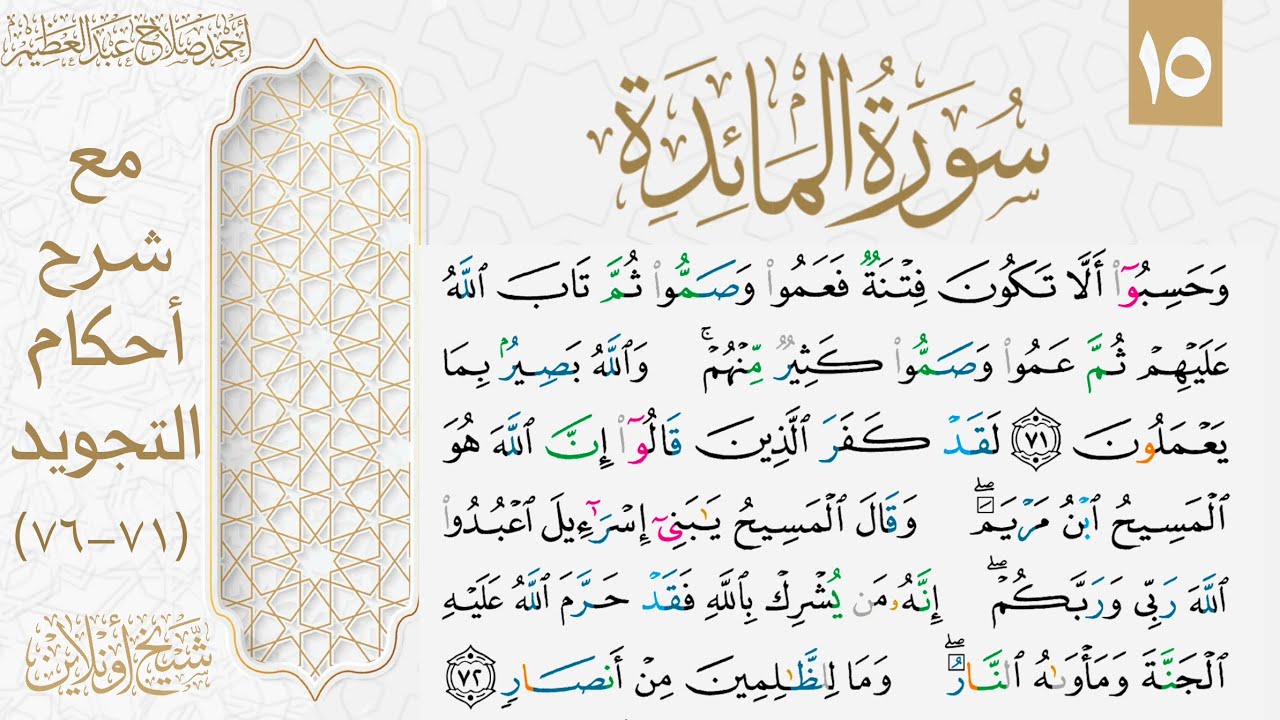 ١٥
سُورَةُ الْمَائِدَةِ
أحمد صلاح عبد العظيم
مع
شرح
أحكام
التجويد
(٧١-٧٦)
شيخ أونلاين
وَحَسِبُوٓا۟ أَلَّا تَكُونَ فِتْنَةٌ فَعَمُوا۟ وَصَمُّوا۟ ثُمَّ تَابَ ٱللَّهُ
عَلَيْهِمْ ثُمَّ عَمُوا۟ وَصَمُّوا۟ كَثِيرٌ مِّنْهُمْ ۚ وَٱللَّهُ بَصِيرٌۢ بِمَا
يَعْمَلُونَ ٧١ لَقَدْ كَفَرَ ٱلَّذِينَ قَالُوٓا۟ إِنَّ ٱللَّهَ هُوَ
ٱلْمَسِيحُ ٱبْنُ مَرْيَمَ ۖ وَقَالَ ٱلْمَسِيحُ يَٰبَنِىٓ إِسْرَٰٓءِيلَ ٱعْبُدُوا۟
ٱللَّهَ رَبِّى وَرَبَّكُمْ ۖ إِنَّهُۥ مَن يُشْرِكْ بِٱللَّهِ فَقَدْ حَرَّمَ ٱللَّهُ عَلَيْهِ
ٱلْجَنَّةَ وَمَأْوَىٰهُ ٱلنَّارُ ۖ وَمَا لِلظَّٰلِمِينَ مِنْ أَنصَارٍ ٧٢